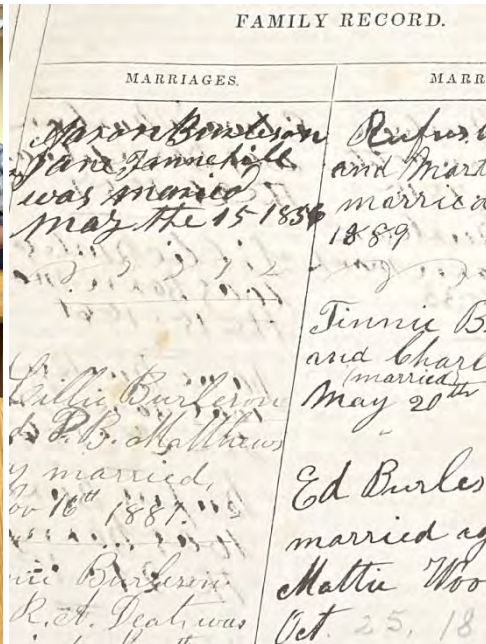 FAMILY RECORD.
MARRIAGES.
Aaron Burleson
Jane Tannehill
was maried
may the 15 1856
Lillie Burleson
P. B. Matthews
married,
16th 1887.
Burleson
R. A. Deat was
MARR
Rufus
and Mart
married
1889
Tinnie B
and Charl
(married)
May 20th
Ed Burles
married ag
Mattie Woo
Oct. 25, 18